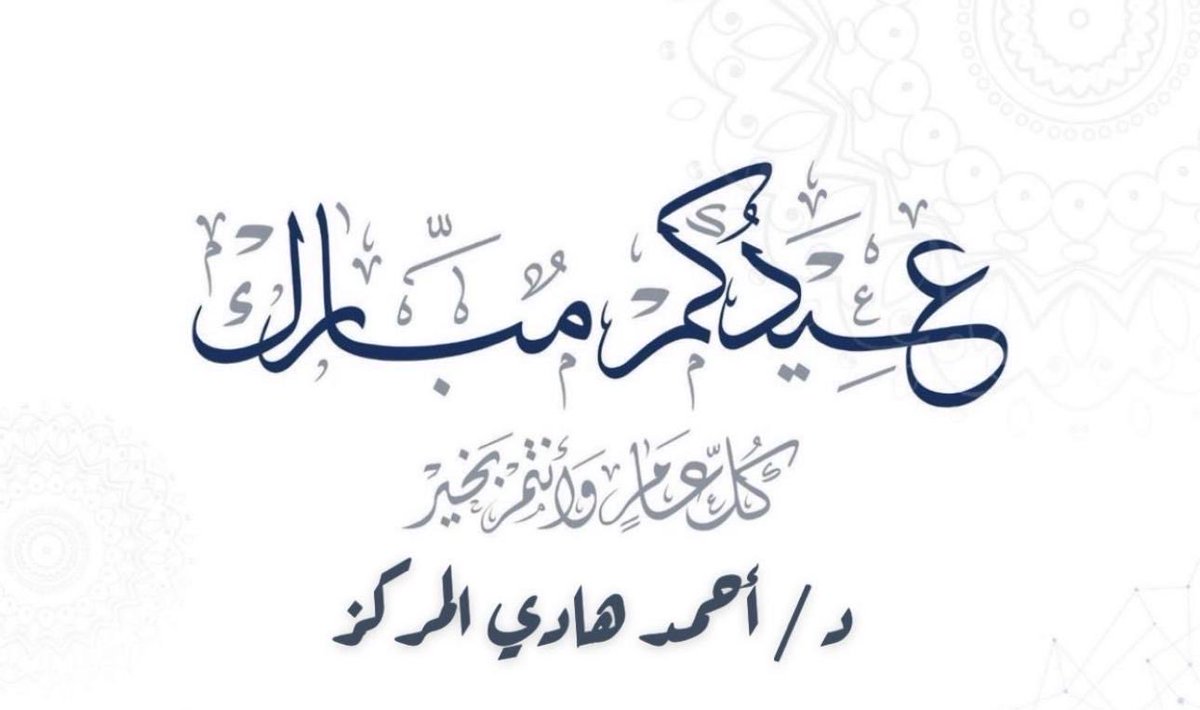 عِيدُكُم مُبَارك
كُلُّ عَامٍ وَأَنتُم بَخَيْر
د/ أحمد هادي المركز